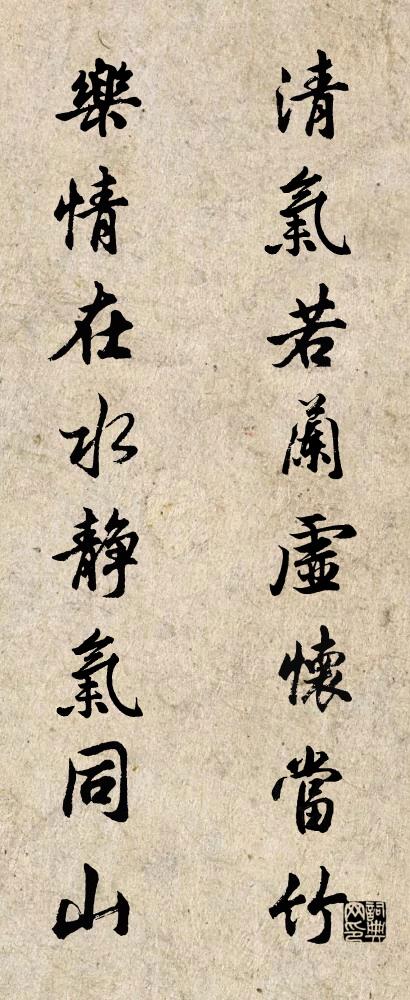 清氣若蘭虛懷當竹
樂情在水静氣同山
詞典網印